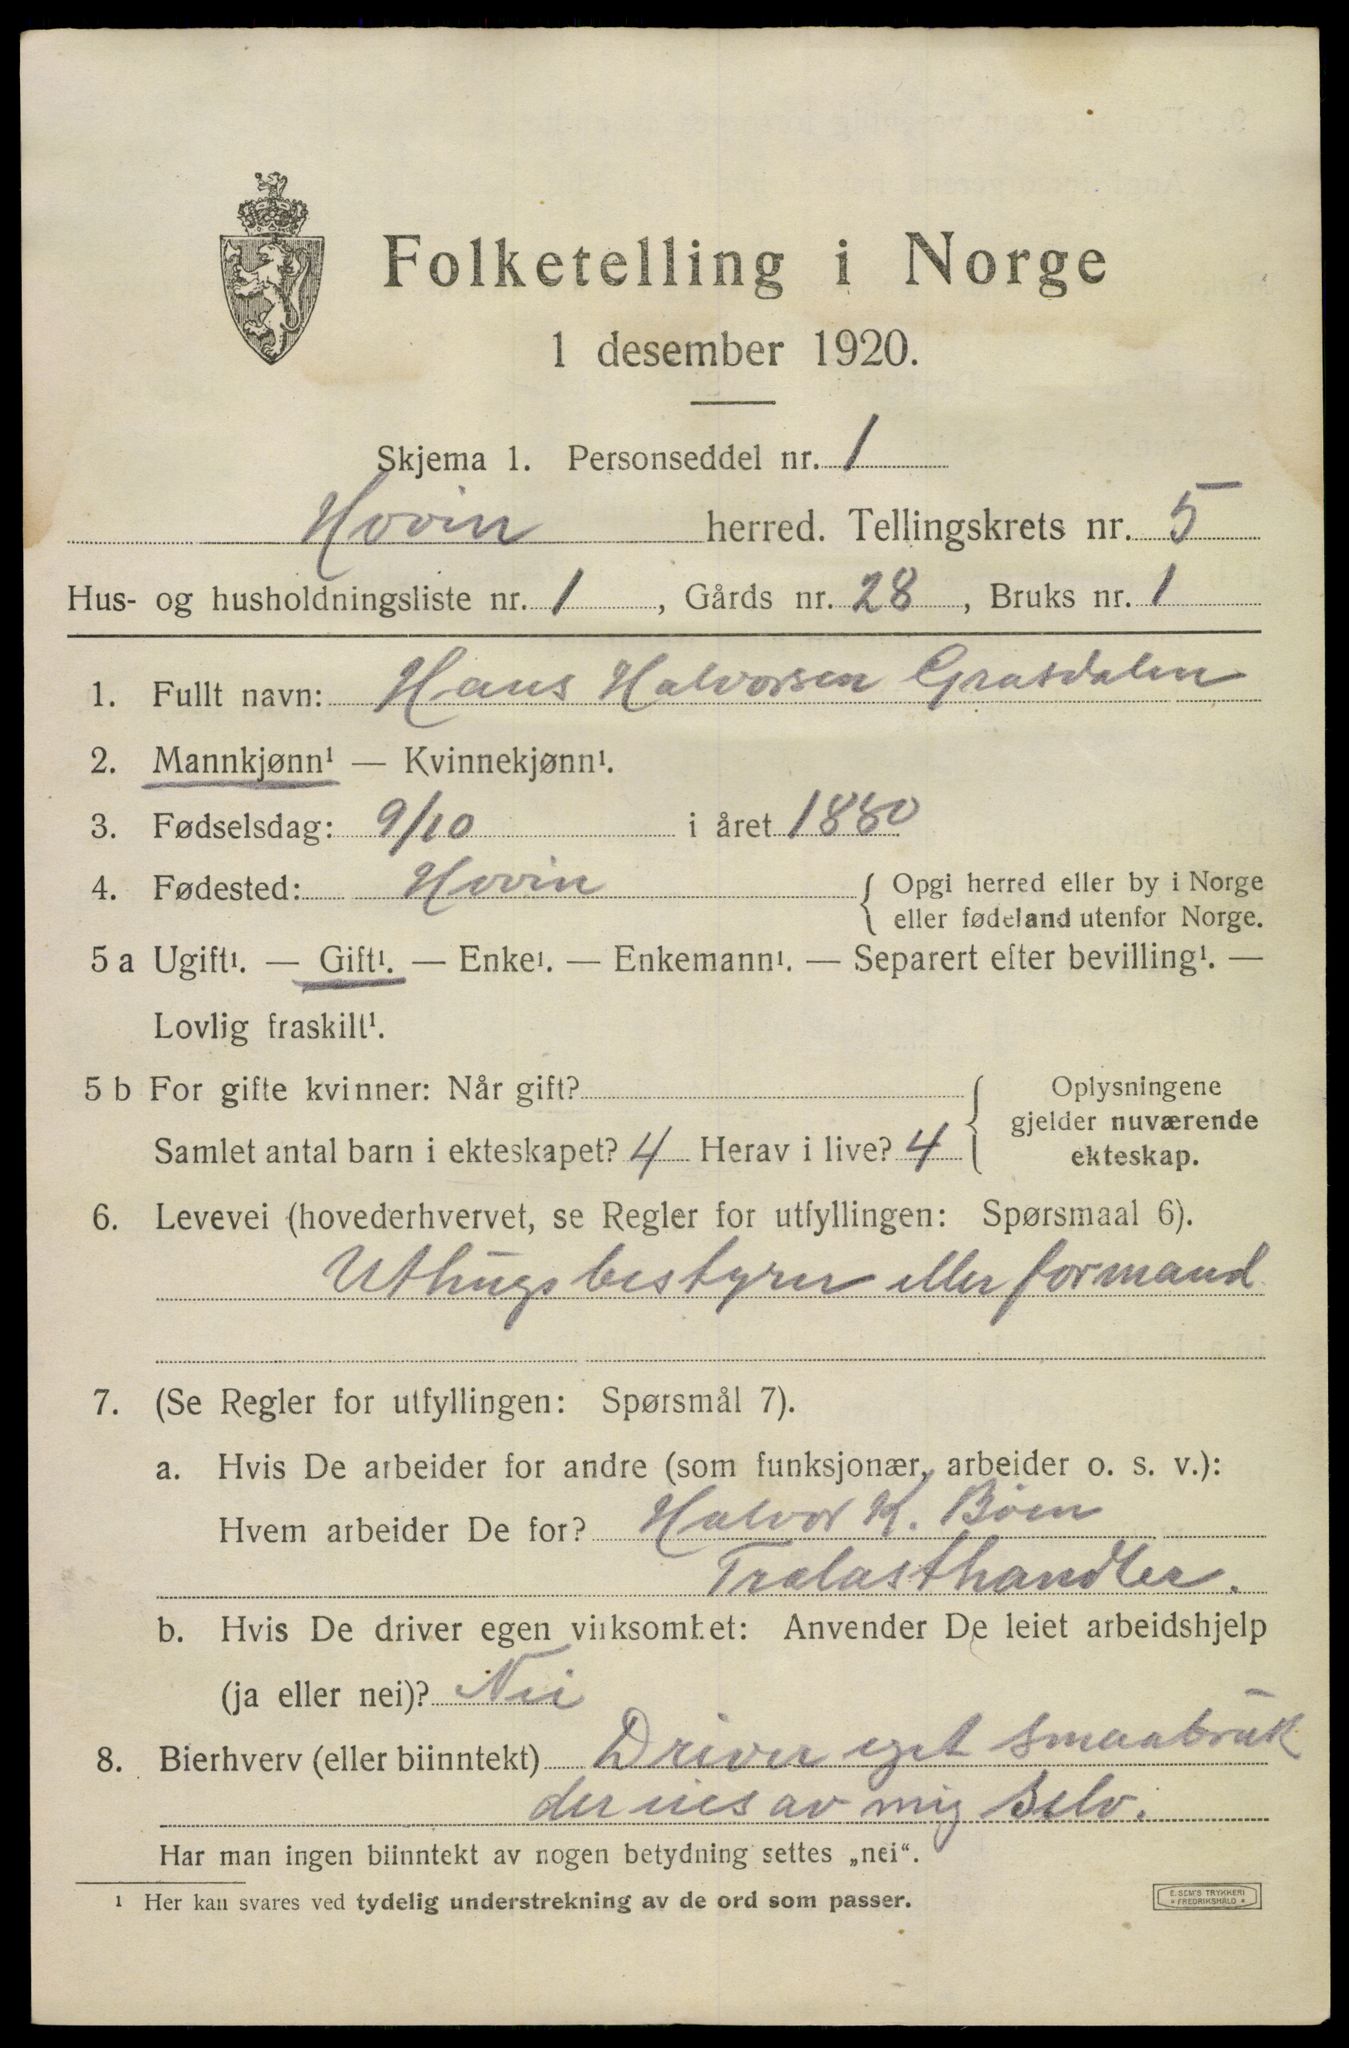 Folketelling i Norge
1 desember 1920.
Skjema 1. Personseddel nr. 1
Hovin herred. Tellingskrets nr. 5
Hus- og husholdningsliste nr. 1, Gårds nr. 28, Bruks nr. 1
1. Fullt navn: Hans Halvorsen Grasdalen
2. Mannkjønn¹ — Kvinnekjønn¹.
3. Fødselsdag: 9/10 i året 1880
4. Fødested: Hovin { Opgi herred eller by i Norge
eller fødeland utenfor Norge.
5 a Ugift¹. — Gift¹. — Enke¹. — Enkemann¹. — Separert efter bevilling¹. —
Lovlig fraskilt¹.
5 b For gifte kvinner: Når gift?
Samlet antal barn i ekteskapet? 4 Herav i live? 4
Oplysningene
gjelder nuværende
ekteskap.
6. Levevei (hovederhvervet, se Regler for utfyllingen: Spørsmaal 6).
Uthugsbestyrer eller formand
7. (Se Regler for utfyllingen: Spørsmål 7).
a. Hvis De arbeider for andre (som funksjonær, arbeider o. s. v.):
Hvem arbeider De for? Halvor K. Bøen
Trælasthandler.
b. Hvis De driver egen virksomhet: Anvender De leiet arbeidshjelp
(ja eller nei)? Nei
8. Bierhverv (eller biinntekt) Driver eget smaabruk
der eies av mig selv.
Har man ingen biinntekt av nogen betydning settes „nei“.
¹ Her kan svares ved tydelig understrekning av de ord som passer.
E. SEM'S TRYKKERI
* FREDRIKSHALD *